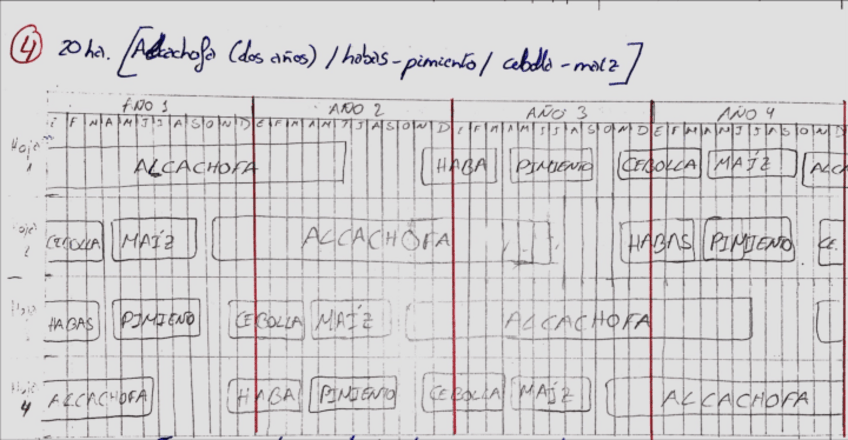 4 20 ha. [Alcachofa (dos años) / habas-pimiento / cebolla-maíz]
AÑO 1 AÑO 2 AÑO 3 AÑO 4
F M A M J J A S O N D E F M A M J J A S O N D E F M A M J J A S O N D E F M A M J J A S O N D
Hoja 1 ALCACHOFA HABA PIMIENTO CEBOLLA MAÍZ ALC
Hoja 2 CEBOLLA MAÍZ ALCACHOFA HABAS PIMIENTO CE.
HABAS PIMIENO CEBOLLA MAÍZ ALCACHOFA
Hoja 4 ALCACHOFA HABA PIMIENTO CEBOLLA MAÍZ ALCACHOFA